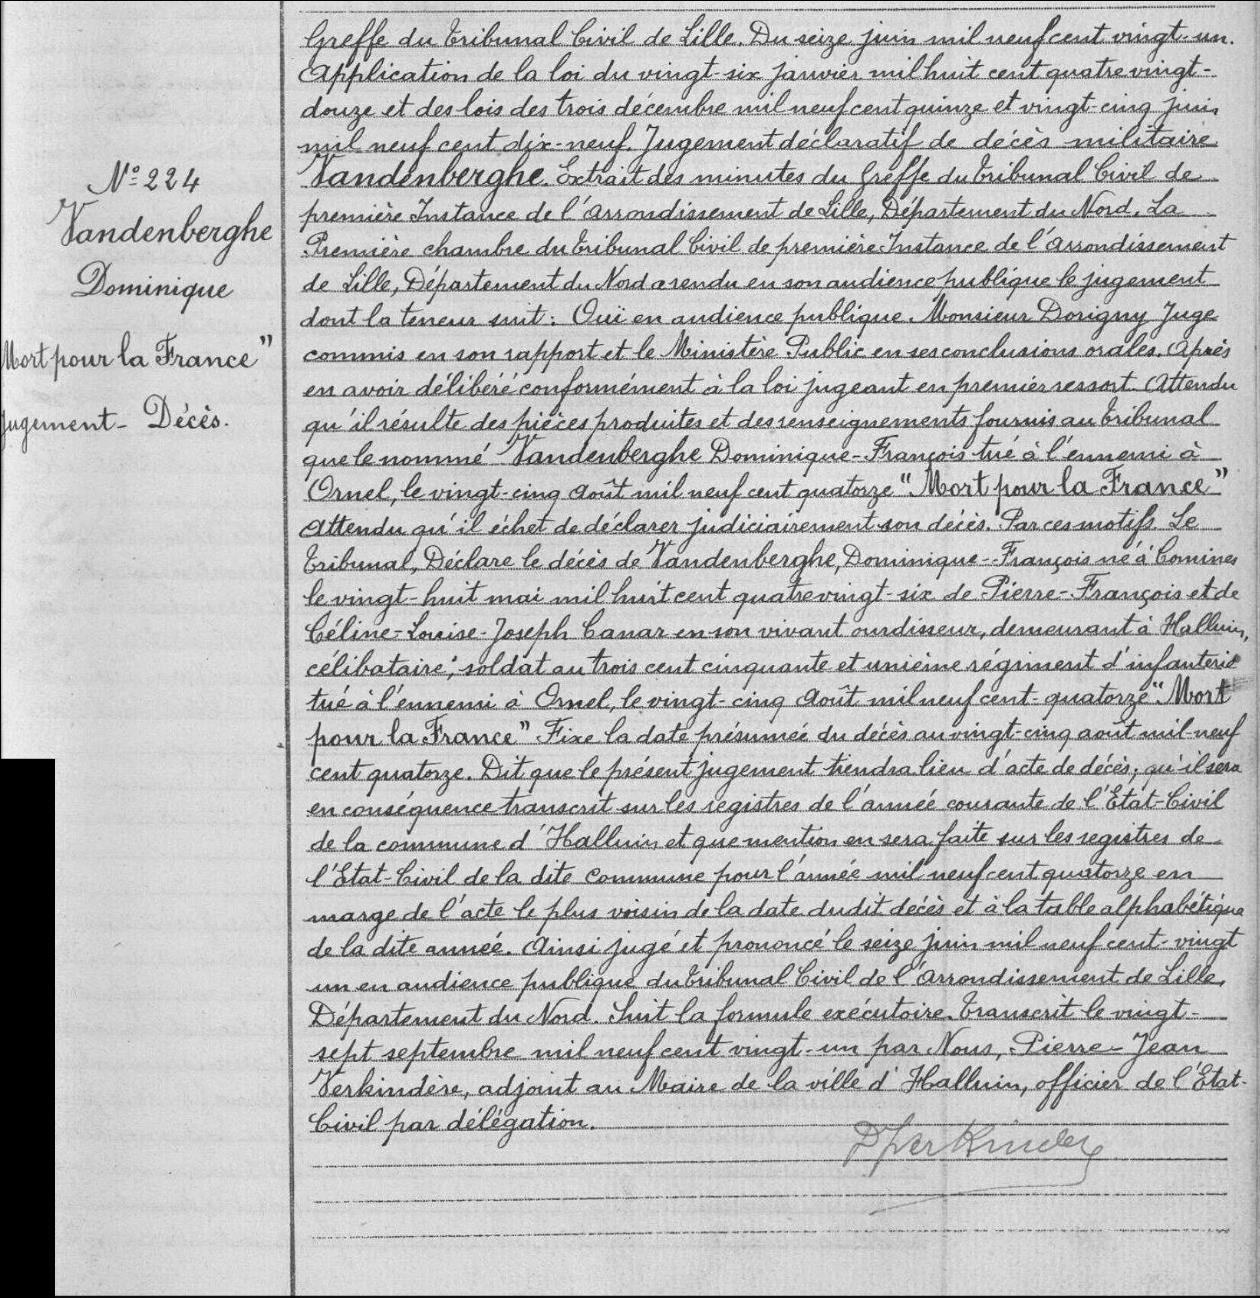 N° 224
Vandenberghe
Dominique
Mort pour la France"
Jugement - Décès.
Greffe du Tribunal Civil de Lille. Du seize juin mil neuf cent vingt-un.
Application de la loi du vingt-six janvier mil huit cent quatre vingt-
douze et des lois des trois décembre mil neuf cent quinze et vingt-cinq juin
mil neuf cent dix-neuf. Jugement déclaratif de décès militaire
Vandenberghe. Extrait des minutes du Greffe du Tribunal Civil de
première Instance de l'arrondissement de Lille, Département du Nord. La
Première chambre du Tribunal Civil de première Instance de l'arrondissement
de Lille, Département du Nord a rendu en son audience publique le jugement
dont la teneur suit : Oui en audience publique Monsieur Dorigny Juge
commis en son rapport et le Ministère Public en ses conclusions orales. Après
en avoir délibéré conformément à la loi jugeant en premier ressort. Attendu
qu'il résulte des pièces produites et des renseignements fournis au Tribunal
que le nommé Vandenberghe Dominique-François tué à l'ennemi à
Ornel, le vingt-cinq août mil neuf cent quatorze "Mort pour la France"
Attendu qu'il échet de déclarer judiciairement son décès. Par ces motifs Le
Tribunal, Déclare le décès de Vandenberghe, Dominique-François né à Comines
le vingt-huit mai mil huit cent quatre vingt-six de Pierre-François et de
Céline-Louise-Joseph Canar en son vivant ourdisseur, demeurant à Halluin,
célibataire; soldat au trois cent cinquante et unième régiment d'infanterie
tué à l'ennemi à Ornel, le vingt-cinq août mil neuf cent-quatorze "Mort
pour la France" Fixe la date présumée du décès au vingt-cinq août mil-neuf
cent quatorze. Dit que le présent jugement tiendra lieu d'acte de décès; qu'il sera
en conséquence transcrit sur les registres de l'année courante de l'Etat-Civil
de la commune d'Halluin et que mention en sera faite sur les registres de
l'Etat-Civil de la dite commune pour l'année mil neuf cent quatorze en
marge de l'acte le plus voisin de la date dudit décès et à la table alphabétique
de la dite année. Ainsi jugé et prononcé le seize juin mil neuf cent-vingt
un en audience publique du Tribunal Civil de l'arrondissement de Lille,
Département du Nord. Suit la formule exécutoire. Transcrit le vingt-
sept septembre mil neuf cent vingt-un par Nous, Pierre-Jean
Verkindère, adjoint au Maire de la ville d'Halluin, officier de l'Etat-
Civil par délégation.